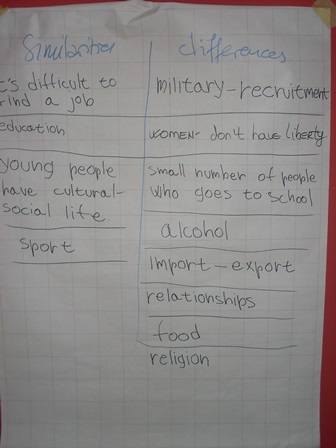 Similarities
't's difficult to
find a job
education
young people
have cultural-
social life
sport
differences
military-recruitment
women- don't have liberty
small number of people
who goes to school
alcohol
import-export
relationships
food
religion